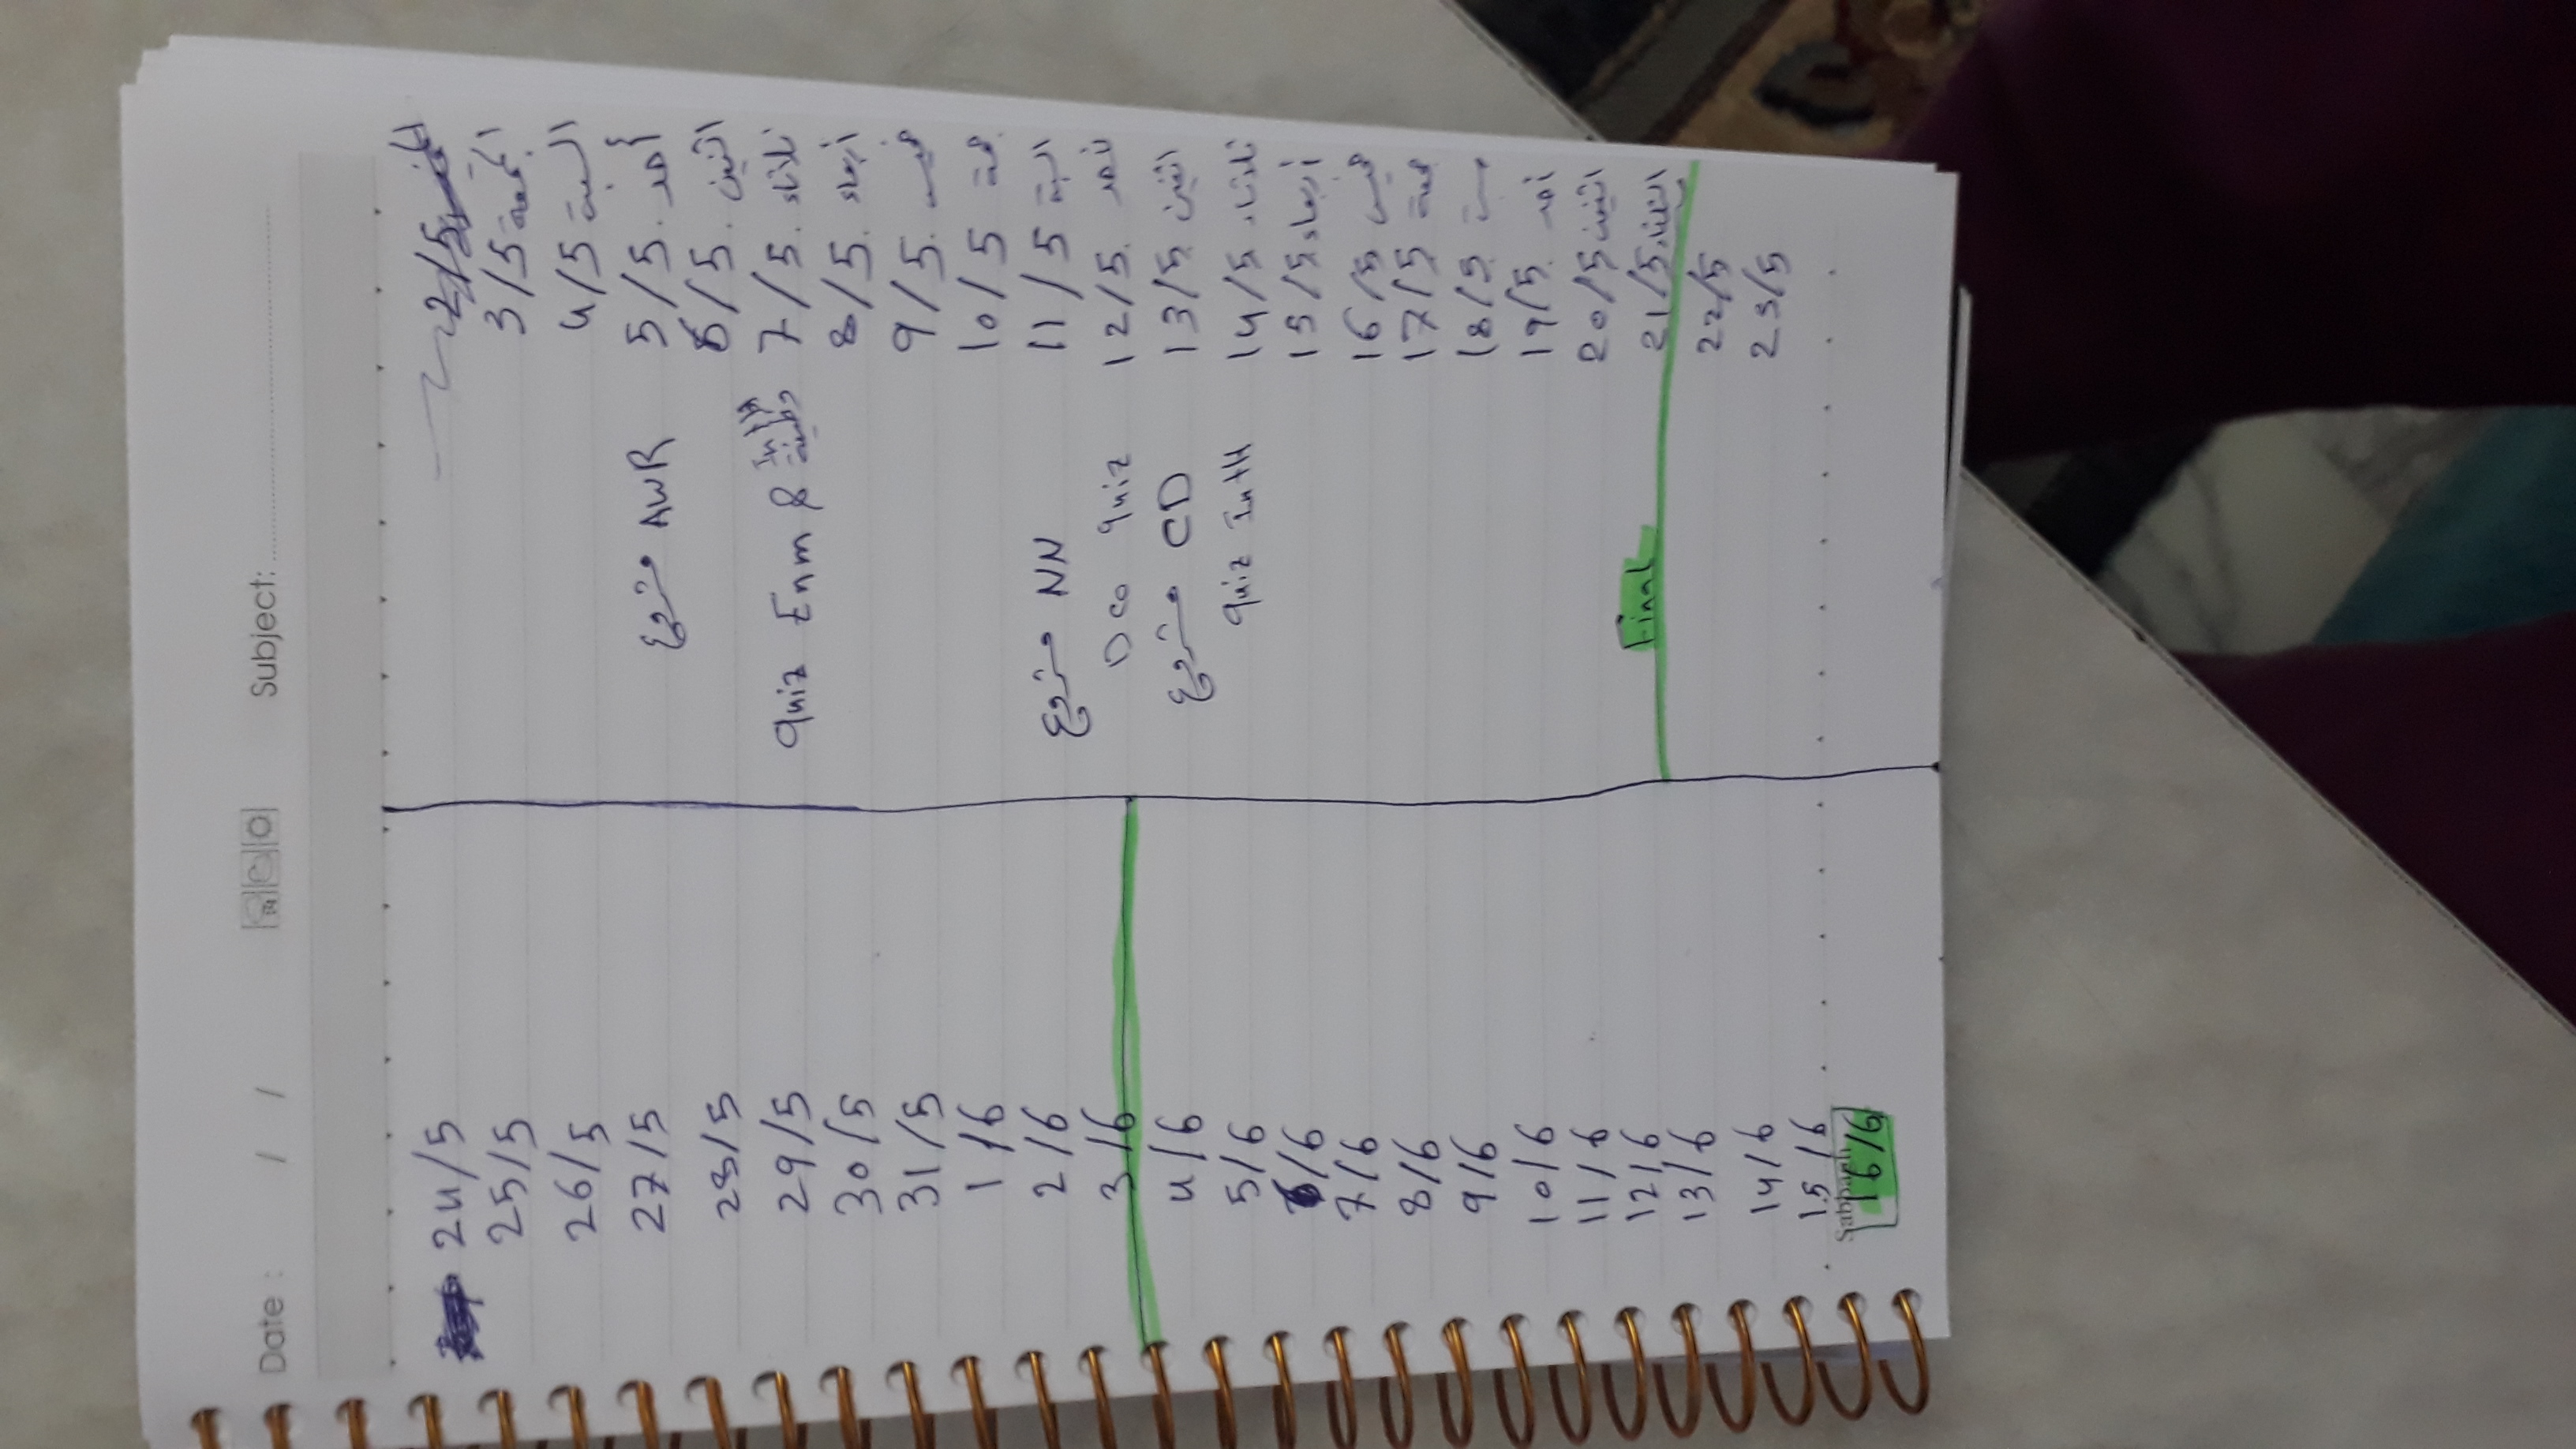 Date : / / Subject:
الخميس 2/5
الجمعة 3/5
السبة 4/5
أحد 5/5. مشروع AWR
اثنين 6/5.
ثلاثاء 7/5. Quiz Enm & وظيفة IntH
أربعاء 8/5.
خميس 9/5.
جمعة 10/5
السبة 11/5 مشروع NN
لأحد 12/5. Dco quiz
اثنين 13/5 مشروع CD
ثلاثاء 14/5 quiz IntH
أربعاء 15/5
خميس 16/5
جمعة 17/5
سبة 18/5
أحد 19/5.
اثنين 20/5
الثلاثاء 21/5 Final
22/5
23/5
24/5
25/5
26/5
27/5
28/5
29/5
30/5
31/5
1/6
2/6
3/6
4/6
5/6
6/6
7/6
8/6
9/6
10/6
11/6
12/6
13/6
14/6
15/6
Sabbagh
16/6